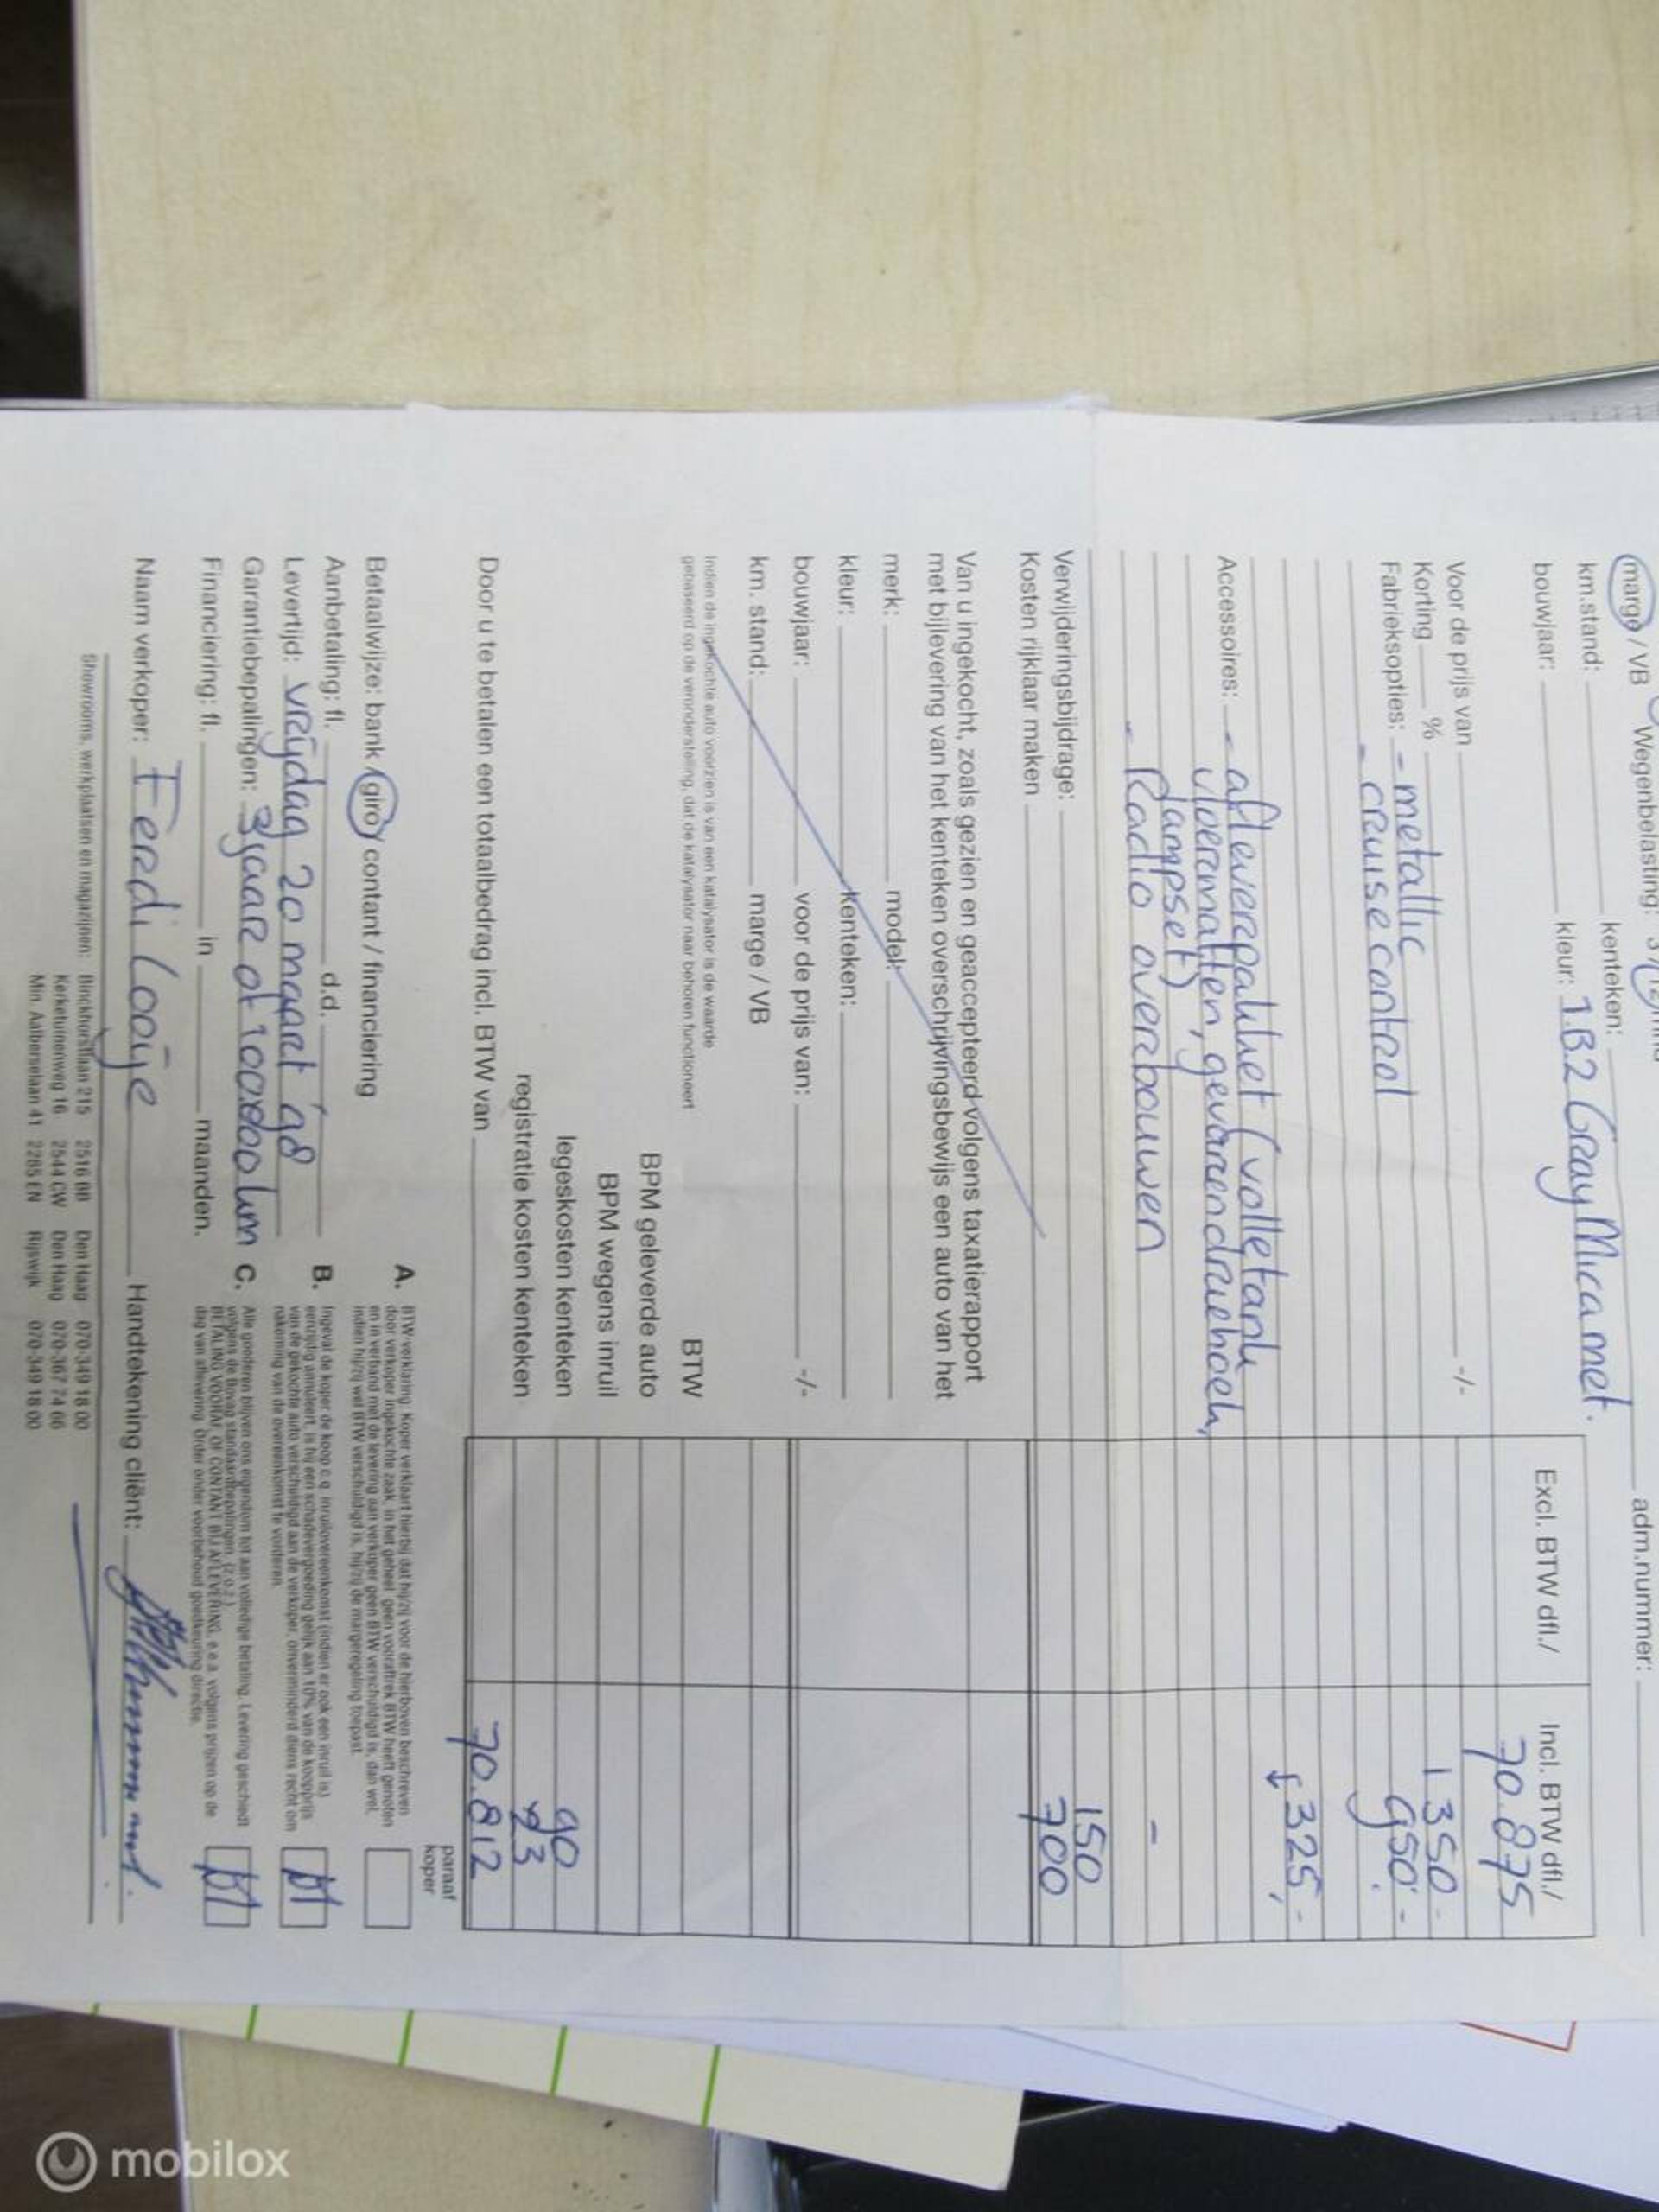 marge / VB Wegenbelasting: 3 / 12 mnd
km.stand: kenteken: adm.nummer:
bouwjaar: kleur: 1B2 Gray Mica met.
Excl. BTW dfl./ Incl. BTW dfl./
Voor de prijs van 70.875
Korting % -/-
Fabrieksopties: - metallic 1350-
- cruise control 950.-
325,-
Accessoires: - afleverpakket (volle tank
vloermatten, gevarendriehoek,
lampset)
- Radio overbouwen -
Verwijderingsbijdrage: 150
Kosten rijklaar maken 700
Van u ingekocht, zoals gezien en geaccepteerd volgens taxatierapport
met bijlevering van het kenteken overschrijvingsbewijs een auto van het
merk: model:
kleur: kenteken:
bouwjaar: voor de prijs van: -/-
km. stand: marge / VB
Indien de ingekochte auto voorzien is van een katalysator is de waarde
gebaseerd op de veronderstelling, dat de katalysator naar behoren functioneert
BTW
BPM geleverde auto
BPM wegens inruil
legeskosten kenteken 90
registratie kosten kenteken 23
Door u te betalen een totaalbedrag incl. BTW van 70.812
paraaf
koper
Betaalwijze: bank / giro / contant / financiering
Aanbetaling: fl. d.d.
Levertijd: vrijdag 20 maart '98
Garantiebepalingen: 3 jaar of 100.000 km
Financiering: fl. in maanden.
A. BTW-verklaring. Koper verklaart hierbij dat hij/zij voor de hierboven beschreven
door verkoper ingekochte zaak, in het geheel geen vooraftrek BTW heeft genoten
en in verband met de levering aan verkoper geen BTW verschuldigd is, dan wel,
indien hij/zij wel BTW verschuldigd is, hij/zij de margeregeling toepast.
B. Ingeval de koper de koop c.q. inruilovereenkomst (indien er ook een inruil is)
eenzijdig annuleert, is hij een schadevergoeding gelijk aan 10% van de koopprijs
van de gekochte auto verschuldigd aan de verkoper, onverminderd diens recht om
nakoming van de overeenkomst te vorderen.
C. Alle goederen blijven ons eigendom tot aan volledige betaling. Levering geschiedt
volgens de Bovag standaardbepalingen. (Z.O.Z.).
BETALING VOORAF OF CONTANT BIJ AFLEVERING, e.e.a. volgens prijzen op de
dag van aflevering. Order onder voorbehoud goedkeuring directie.
Naam verkoper: Ferdi Looije Handtekening cliënt:
Showrooms, werkplaatsen en magazijnen: Binckhorstlaan 215 2516 BB Den Haag 070-349 18 00
Kerketuinenweg 16 2544 CW Den Haag 070-367 74 66
Min. Aalberselaan 41 2285 EN Rijswijk 070-349 18 00
mobilox